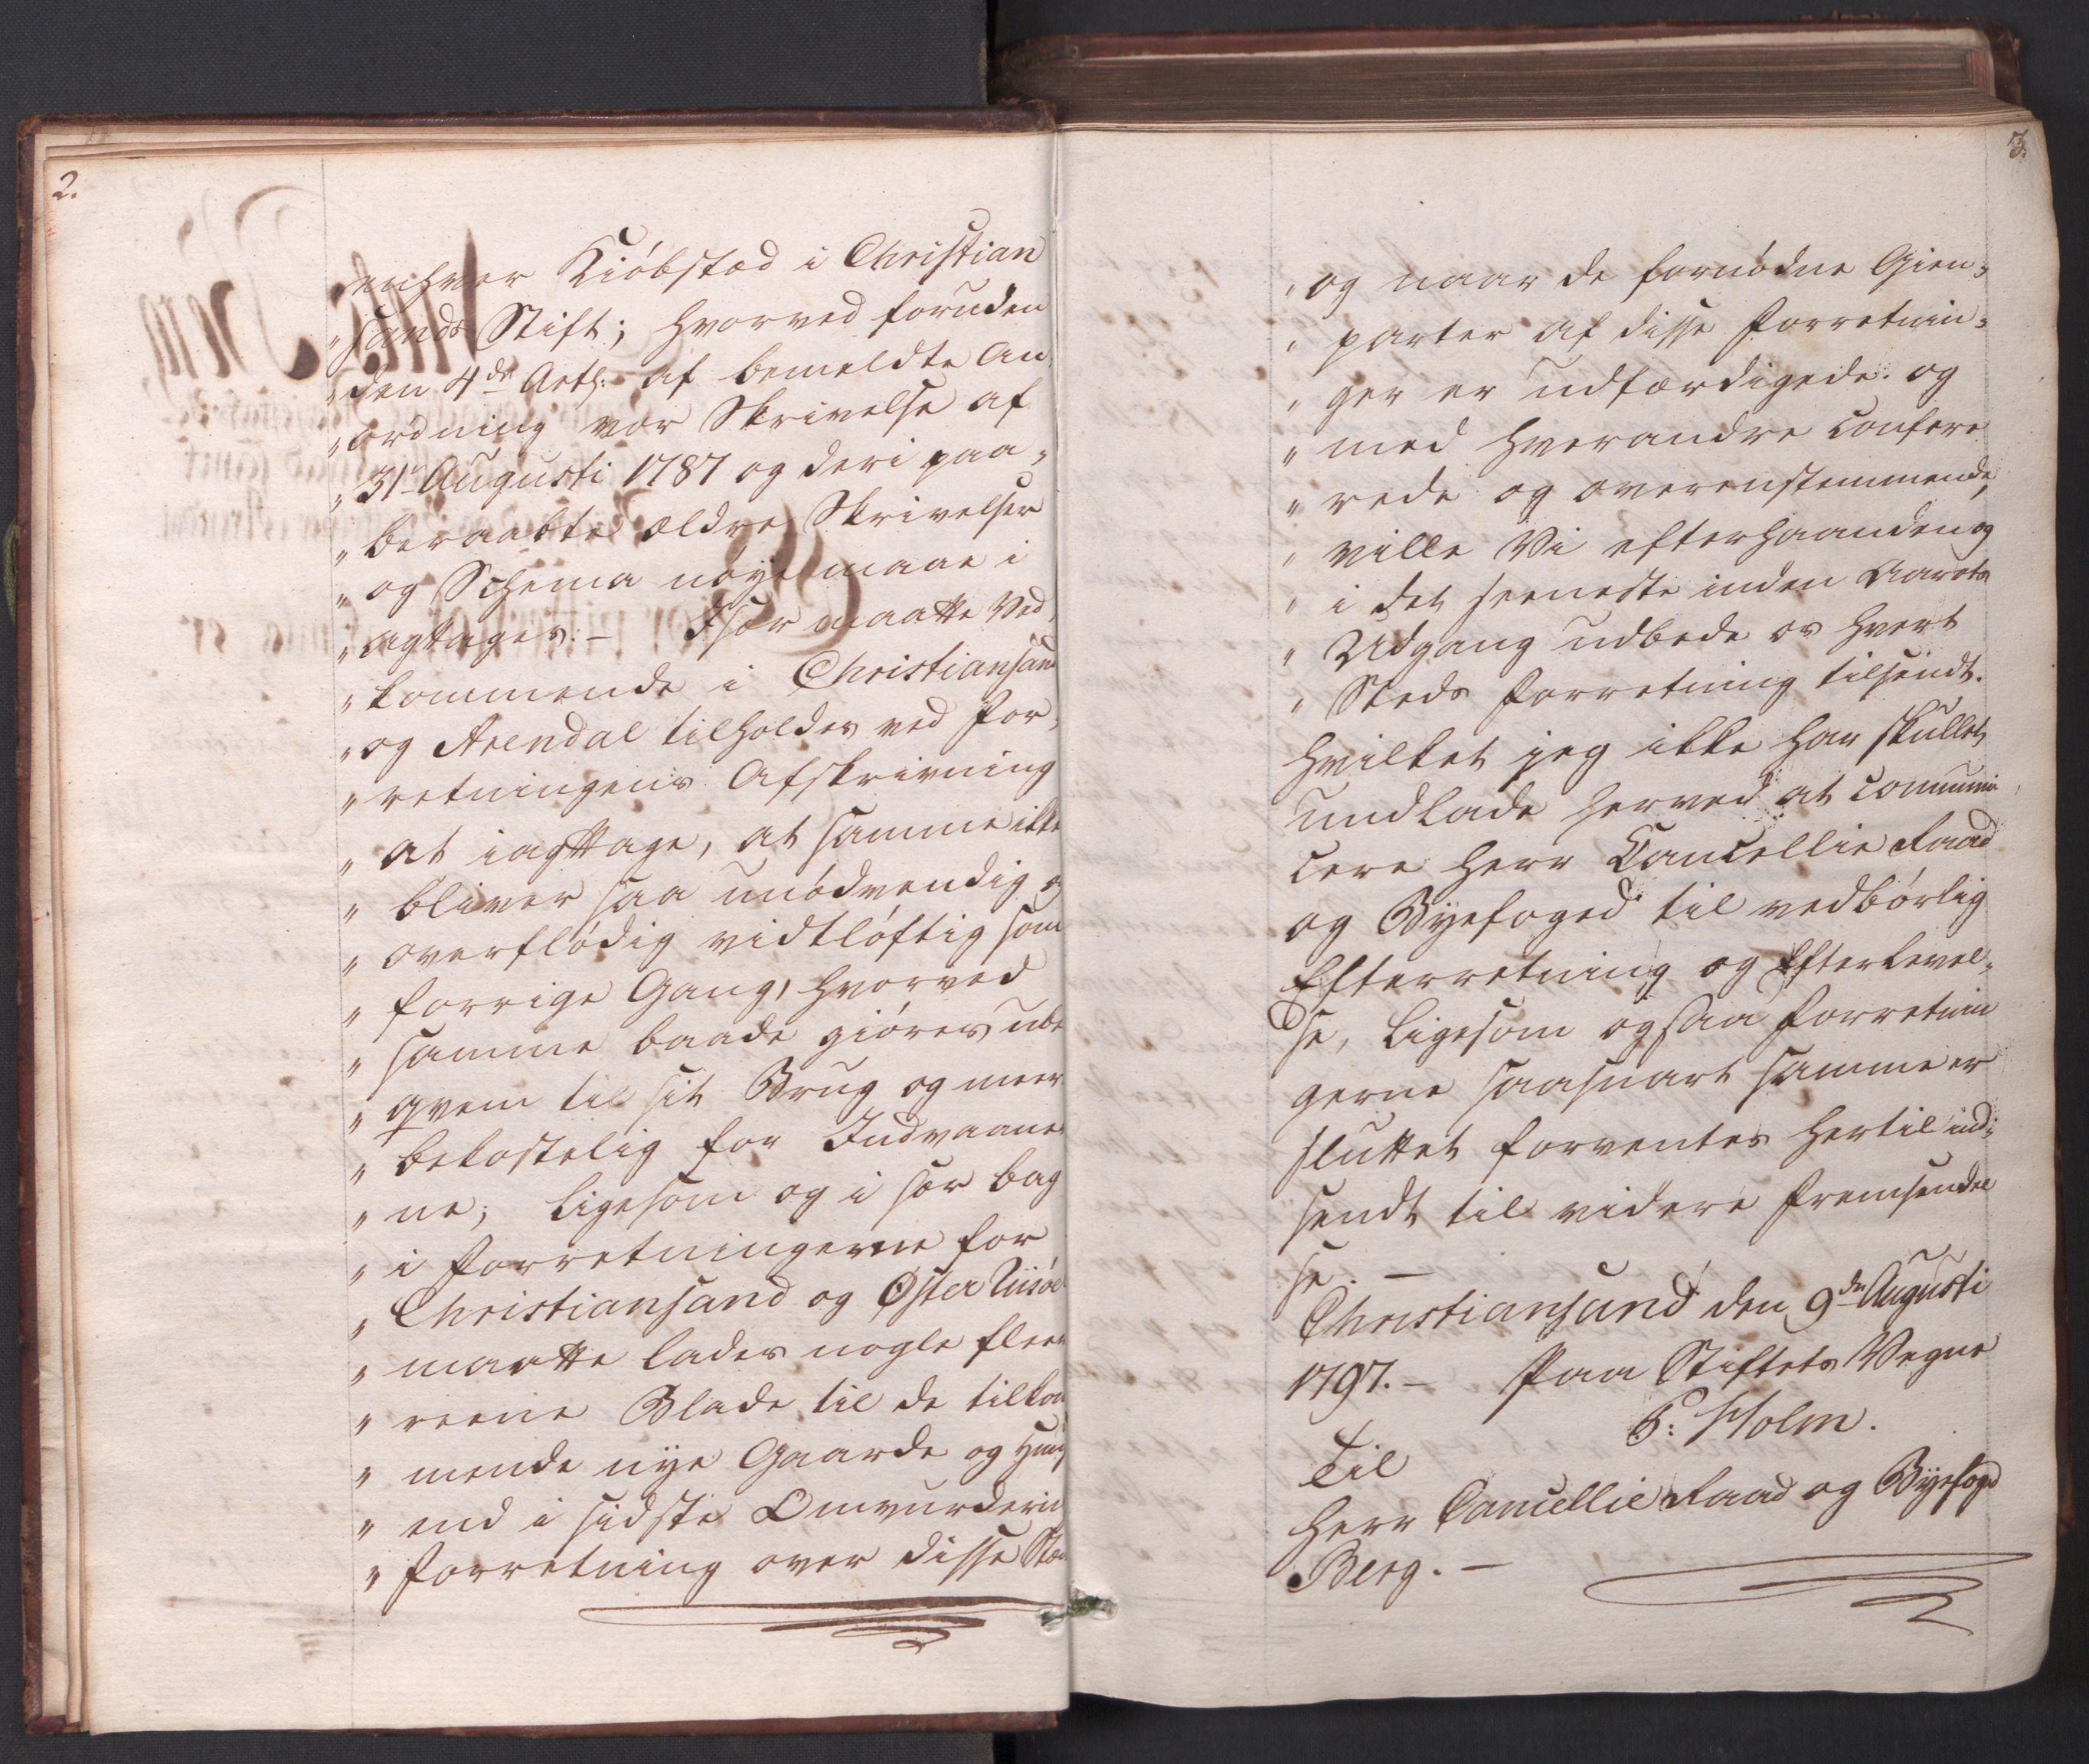 2.
enhver Kiöbstad i Christian
" sands Stift; hvorved foruden
" den 4de Artl: af bemeldte An
" ordning vor Skrivelse af
" 31 Augusti 1787 og deri paa,
" beraabte ældre Skrivelser
" og Schema nøye maae i
" agttages. – Især maatte Ved,
" kommende i Christiansand
" og Arendal tilholdes ved For,
" retningens Afskrivning
" at iagttage, at samme ikke
" bliver saa unödvendig og
" overflödig vidtlöftig som
" forrige Gang, hvorved
" samme baade giöres ube
" qvem til sit Brug og meer
" bekostelig for Indvaaner
" ne; ligesom og i sær bag
" i Forretningerne for
" Christiansand og Øster Riisöer
" maatte lades nogle fleere
" reene Blade til de tilkom
" mende nye Gaarde og Huus
" end i sidste Omvurderin
" Forretning over disse Stæ
3.
" og naar de fornödne Gien,
" parter af disse Forretnin,
" ger er udfærdigede og
" med hverandre confere
" rede og overenstemmende,
" ville Vi efterhaanden og
" i det seeneste inden Aarets
" Udgang udbede os hvert
" Steds Forretning tilsendt.
hvilket jeg ikke har skullet
undlade herved at communi
cere Herr Cancellie Raad
og Byefoged til vedbörlig
Efterretning og Efterlevel,
se, ligesom ogsaa Forretnin
gerne saasnart samme er
sluttet forventes hertil ind,
sendt til videre Fremsendel
se. –
Christiansand den 9de Augusti
1797. – Paa Stiftets Vegne
P: Holm.
Til
Herr Cancellie Raad og Byefoged
Berg. –